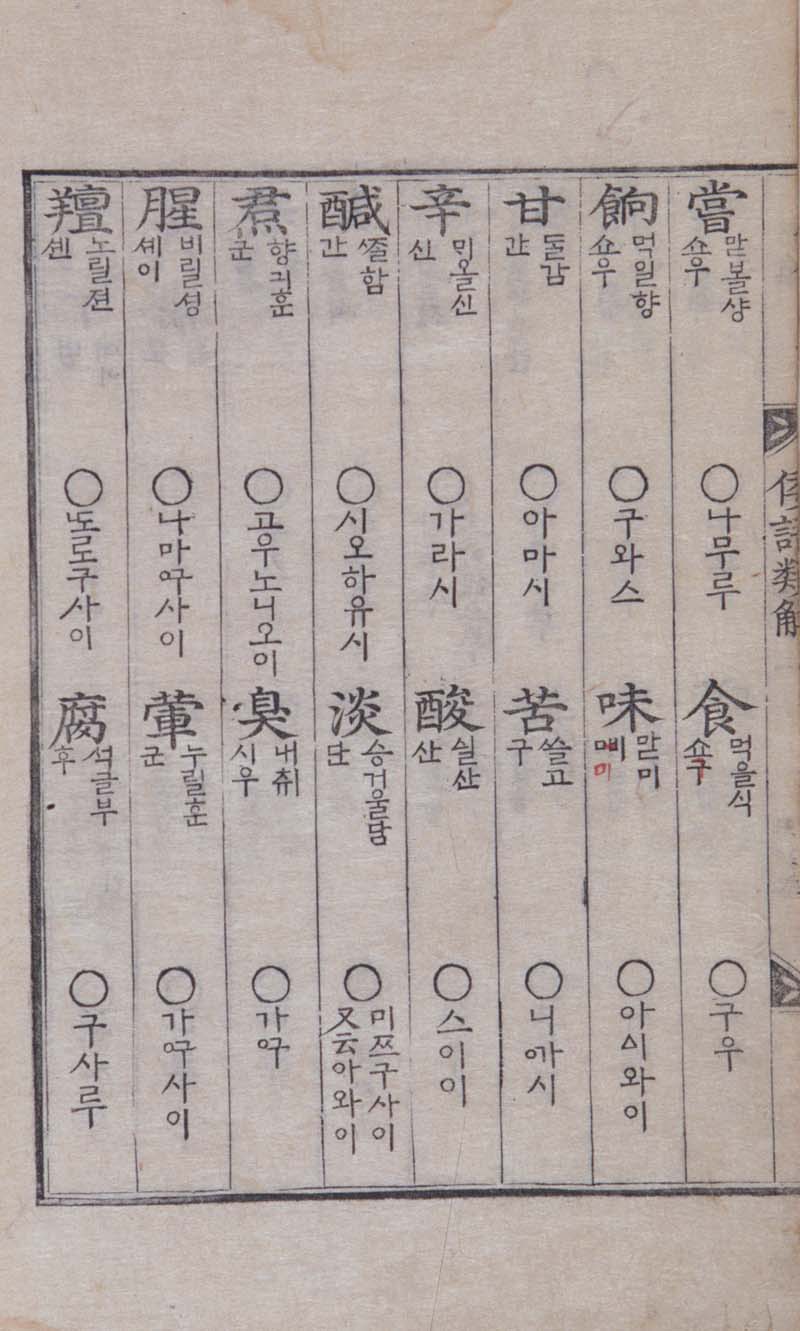 倭語類解
嘗 맏볼샹 쇼우 ○나무루 食 먹을식 쇼구 ○구우
餉 먹일향 쇼우 ○구와스 味 맏미 미 ○아ᅀᅵ와이
甘 ᄃᆞᆯ감 간 ○아마시 苦 쓸고 구 ○니ᅌ가시
辛 ᄆᆡ올신 신 ○가라시 酸 싈산 산 ○스이이
醎 ᄧᆞᆯ함 간 ○시오하유시 淡 승거울담 단 ○미쯔구사이 又云아와이
焄 향긔훈 군 ○고우노니오이 臭 내취 시우 ○가ᅌ구
腥 비릴셩 셰이 ○나마ᅌ구사이 葷 누릴훈 군 ○가ᅌ구사이
羶 노릴젼 셴 ○도로구사이 腐 석글부 후 ○구사루